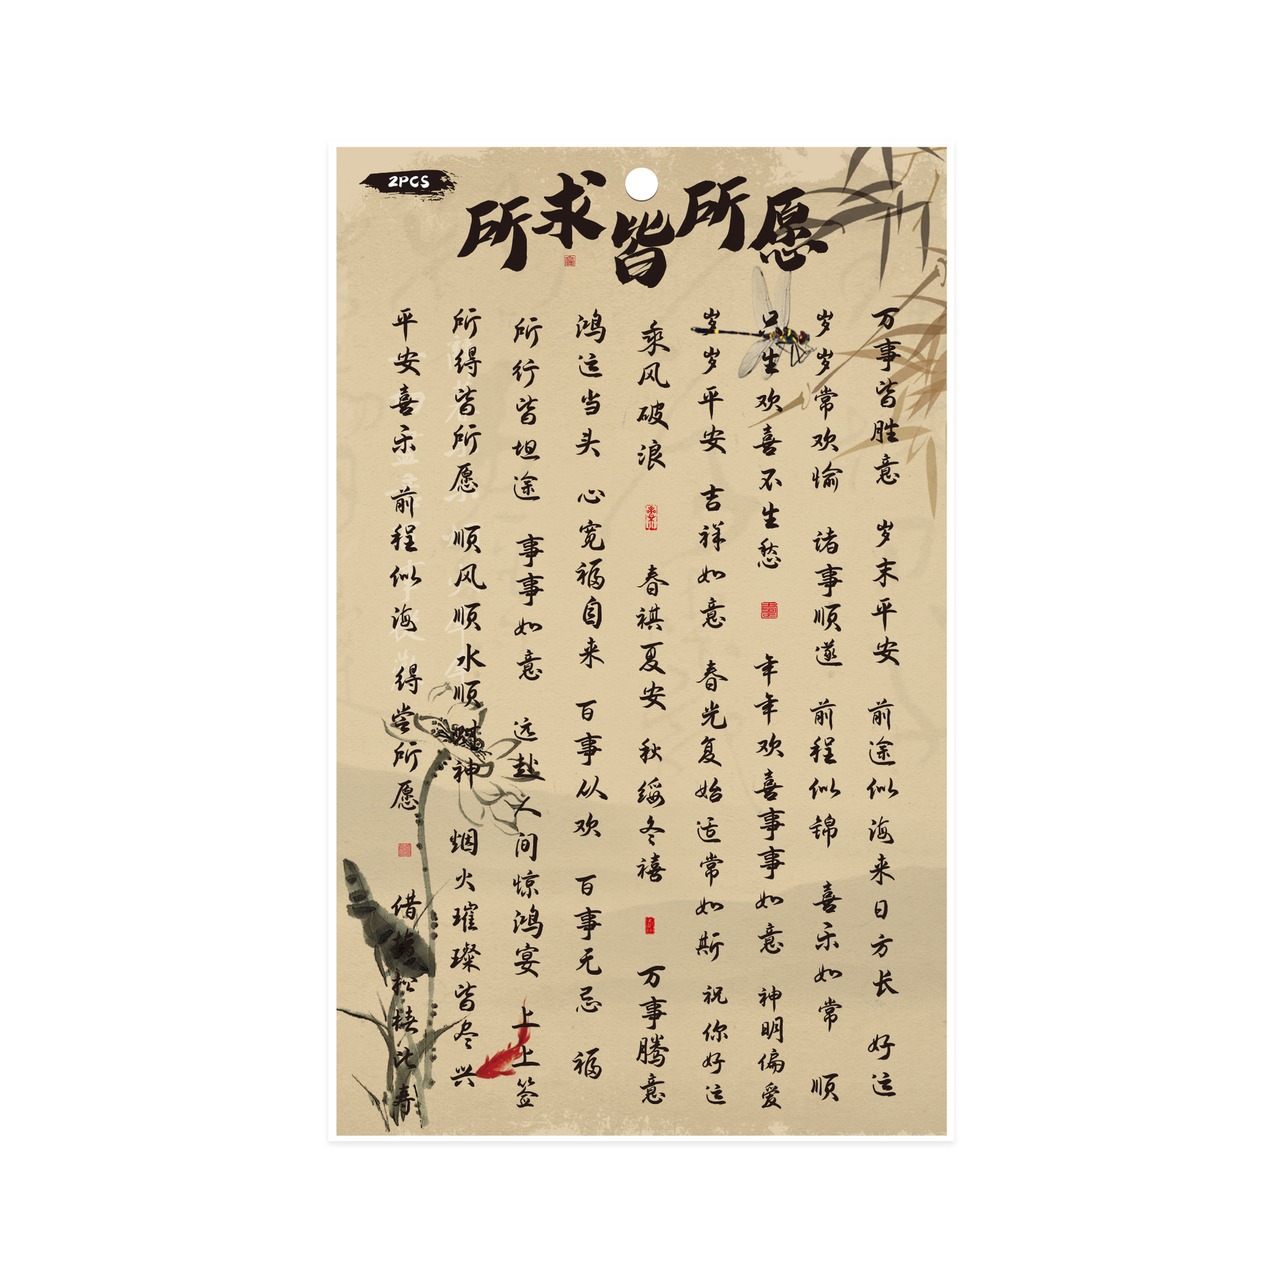 2PCS
所求皆所愿
万事皆胜意 岁末平安 前途似海来日方长 好运
岁岁常欢愉 诸事顺遂 前程似锦 喜乐如常 顺
只生欢喜不生愁 年年欢喜事事如意 神明偏爱
岁岁平安 吉祥如意 春光复始适常如斯 祝你好运
乘风破浪 春祺夏安 秋绥冬禧 万事腾意
鸿运当头 心宽福自来 百事从欢 百事无忌 福
所行皆坦途 事事如意 远赴人间惊鸿宴 上上签
所得皆所愿 顺风顺水顺财神 烟火璀璨皆尽兴
平安喜乐 前程似海 得尝所愿 借 松椿比寿